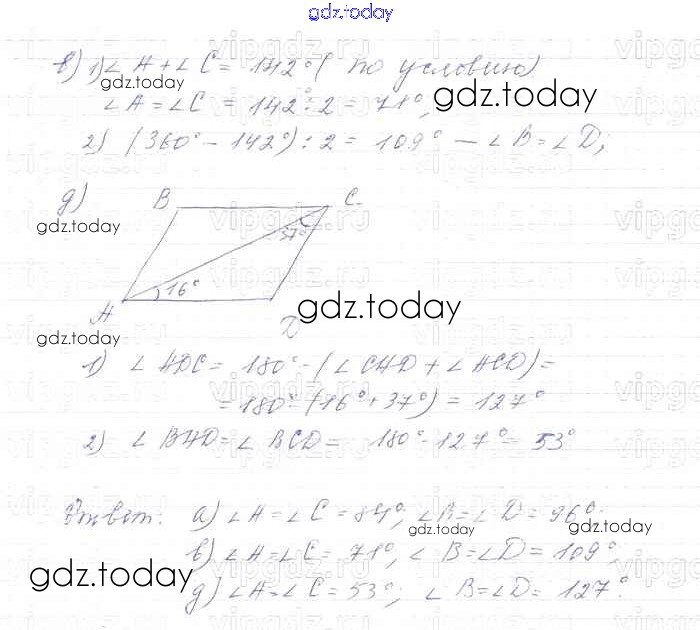 gdz.today
в) 1) ∠A + ∠C = 142° (по условию)
∠A = ∠C = 142° : 2 = 71°;
gdz.today
2) (360° - 142°) : 2 = 109° — ∠B = ∠D;
д)
gdz.today
B C
37°
16°
A D
gdz.today
gdz.today
1) ∠ADC = 180° - (∠CAD + ∠ACD) =
= 180° - (16° + 37°) = 127°
2) ∠BAD = ∠BCD = 180° - 127° = 53°
Ответ: а) ∠A = ∠C = 84°, ∠B = ∠D = 96°;
gdz.today
gdz.today
в) ∠A = ∠C = 71°, ∠B = ∠D = 109°;
gdz.today
д) ∠A = ∠C = 53°; ∠B = ∠D = 127°.